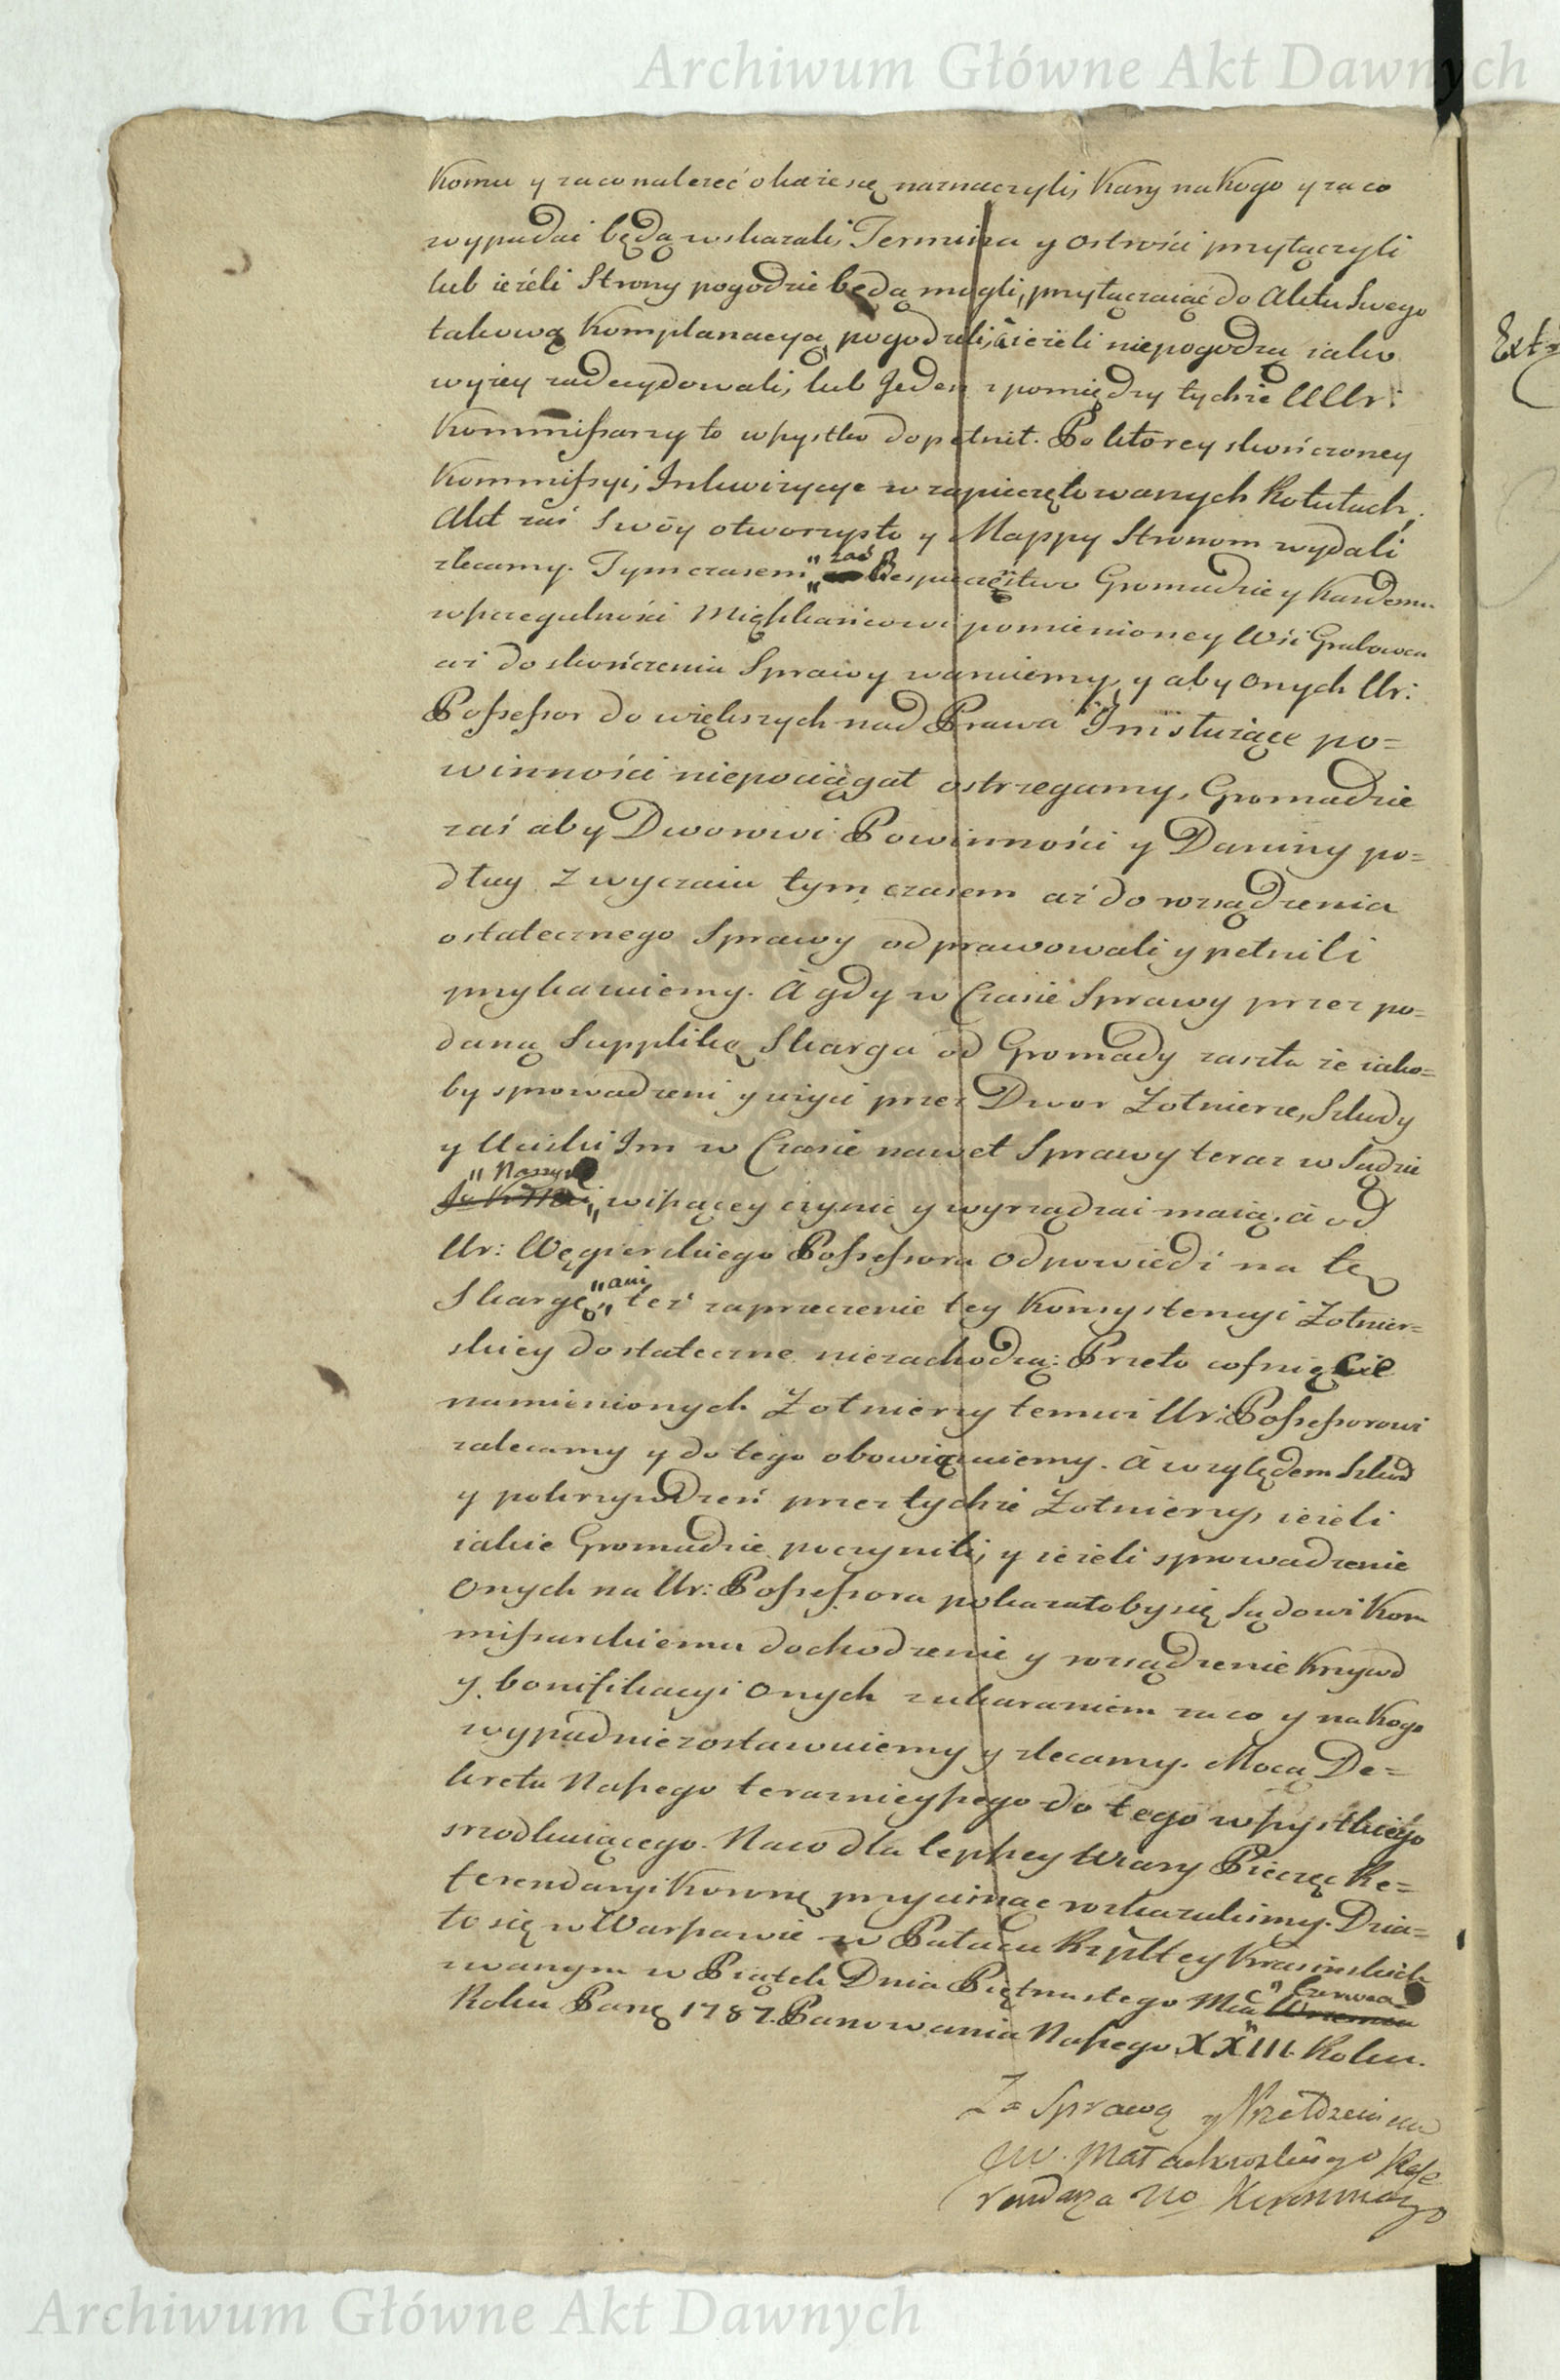 Archiwum Główne Akt Dawnych
Komu y za co nalezeć okaże się naznaczyli, Kary na Kogo y za co
wypadać będą wskazali, Termina y ostrości przyłączyli
lub ieżeli Strony pogodzić będą mogli, przyłączaiąć do Aktu Swego
takową Komplanacyą pogodzili, à ieżeli niepogodzą iako
wyżey zadecydowali, lub Jeden z pomiędzy tychże UUr:
Kommissarzy to wszystko dopełnił. Po ktorey skończoney
Kommissyi, Inkwizycye w zapieczętowanych Rotułach,
Akt zaś Swóy otworzysto y Mappy Stronom wydali
zlecamy. Tymczasem " zaś " Bespieczęstwo Gromadzie y Kazdemu
wszczegulności Mięszkańcowi pomienioney Wsi Grabowca
aż do skończenia Sprawy waruiemy, y aby onych Ur:
Possessor do większych nad Prawa Im służące po=
winności niepociągał ostrzegamy, Gromadzie
zaś aby Dworowi Powinności y Daniny po=
dług Zwyczaiu tym czasem aż do rozsądzenia
ostatecznego Sprawy odprawowali y pełnili
przykazuiemy. À gdy w Czasie Sprawy przez po=
daną Supplikę Skarga od Gromady zaszła że iako=
by sprowadzeni y użyci przez Dwor Żołnierze, Szkody
y Uciski Im w Czasie nawet Sprawy teraz w Sądzie
" Naszym
" wiszącey czynić y wyrządzać maią, à od
Ur: Węgierskiego Possessora odpowiedzi na tę
Skargę " ani " też zaprzeczenie tey Konsystencyi Żołnier=
skiey dostateczne niezachodzą: Przeto cofnięcie
namienionych Żołnierzy temuż Ur: Possessorowi
zalecamy y do tego obowiązuiemy. À względem Szkod
y pokrzywdzeń przez tychże Żołnierzy, ieżeli
iakie Gromadzie poczynili, y ieżeli sprowadzenie
Onych na Ur: Possessora pokazałoby się Sądowi Kom
missarskiemu dochodzenie y rozsądzenie Krzywd
y bonifikacyi Onych z ukaraniem za co y na Kogo
wypadnie zostawuiemy y zlecamy. Mocą De=
kretu Naszego teraznieyszego do tego wszystkiego
srzodkuiącego. Na co dla lepszey Wiary Pieczęć Re=
ferendaryi Koronną przycisnąć rozkazaliśmy. Dzia=
ło się w Warszawie w Pałacu Rzpltey Krasinskich
zwanym w Piątek Dnia Piętnastego Mca " Czerwca
Roku Panę 1787. Panowania Naszego XXIII Roku.
Za Sprawą y
JW. Małachowskiego Refe
rendarza Ko Koronnego
Ext
Archiwum Główne Akt Dawnych